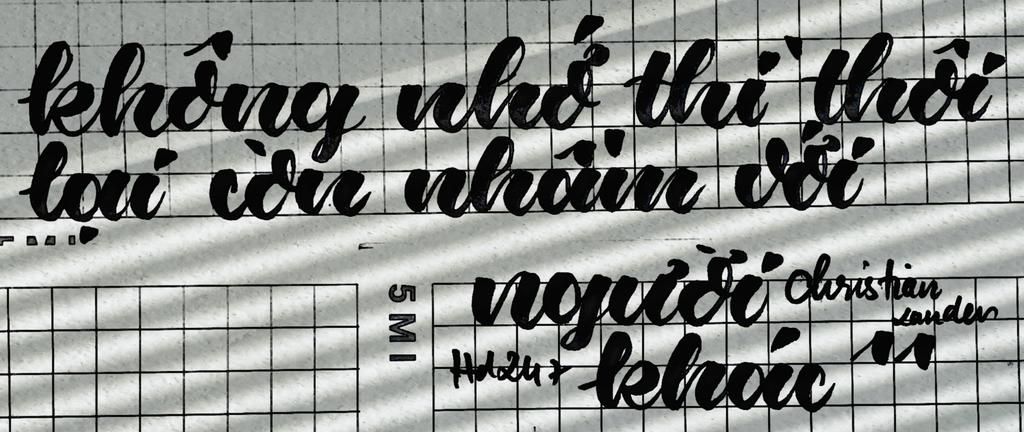 không nhớ thì thôi
lại còn nhầm với
người
Christian
Hd247
khác
5 M I